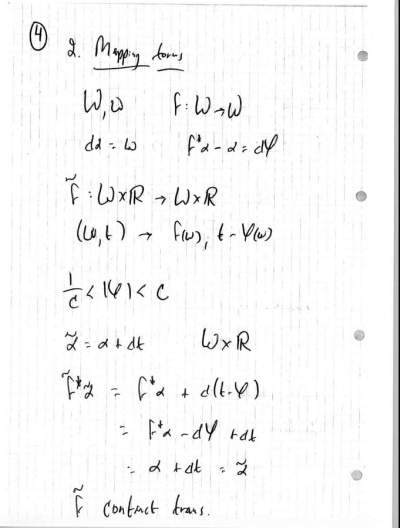 ④
2. Mapping torus
W, ω f : W → W
dα = ω f*α - α = dφ
f̃ : W × ℝ → W × ℝ
(w, t) → f(w), t - φ(w)
1/c < |φ| < c
α̃ = α + dt W × ℝ
f̃*α̃ = f*α + d(t - φ)
= f*α - dφ + dt
= α + dt = α̃
f̃ contact trans.